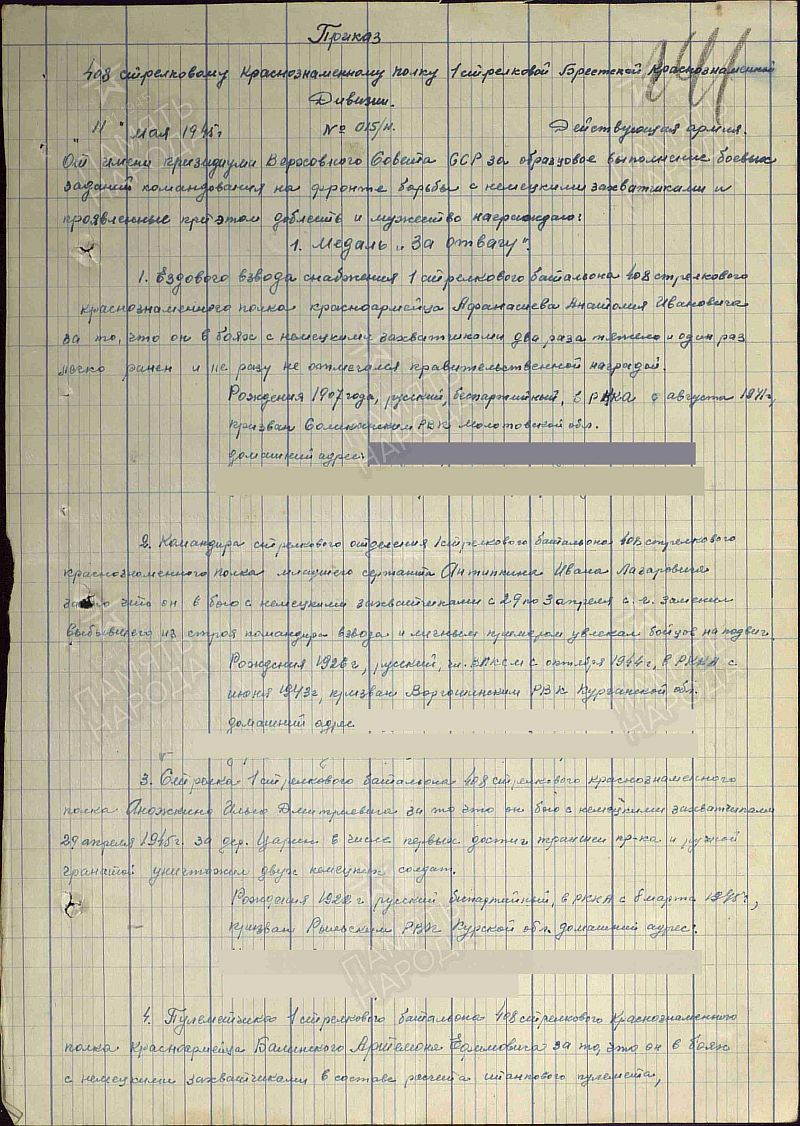 Приказ
408 стрелковому Краснознаменному полку 1 стрелковой Брестской Краснознаменной
Дивизии.
"11" мая 1945г. № 015/н. Действующая армия.
От имени президиума Верховного Совета СССР за образцовое выполнение боевых
заданий командования на фронте борьбы с немецкими захватчиками и
проявленные при этом доблесть и мужество награждаю:
1. Медаль „За отвагу".
1. Ездового взвода снабжения 1 стрелкового батальона 408 стрелкового
краснознаменного полка красноармейца Афанасьева Анатолия Ивановича
за то, что он в боях с немецкими захватчиками два раза тяжело и один раз
легко ранен и не разу не отмечался правительственной наградой.
Рождения 1907 года, русский, беспартийный, в РККА с августа 1941г,
призван Соликамским РВК Молотовской обл.
домашний адрес:
2. Командира стрелкового отделения 1 стрелкового батальона 408 стрелкового
краснознаменного полка младшего сержанта Антипкина Ивана Лазаровича
за то что он в бою с немецкими захватчиками с 29 по 3 апреля с.г. заменил
выбывшего из строя командира взвода и личным примером увлекал бойцов на подвиг.
Рождения 1926г, русский, чл. ВЛКСМ с октября 1944г, в РККА с
июня 1943г, призван РВК Курганской обл.
домашний адрес
3. Стрелка 1 стрелкового батальона 408 стрелкового краснознаменного
полка Аножкина Илью Дмитриевича за то что он бою с немецкими захватчиками
29 апреля 1945г. за дер. Царен в числе первых достиг траншеи пр-ка и ручной
гранатой уничтожил двух немецких солдат.
Рождения 1922г русский беспартийный, в РККА с 8 марта 1945г,
призван Рыльским РВК Курской обл. домашний адрес:
4. Пулеметчика 1 стрелкового батальона 408 стрелкового Краснознаменного
полка красноармейца Балинского Артемона Ефимовича за то, что он в боях
с немецкими захватчиками в составе расчета станкового пулемета,